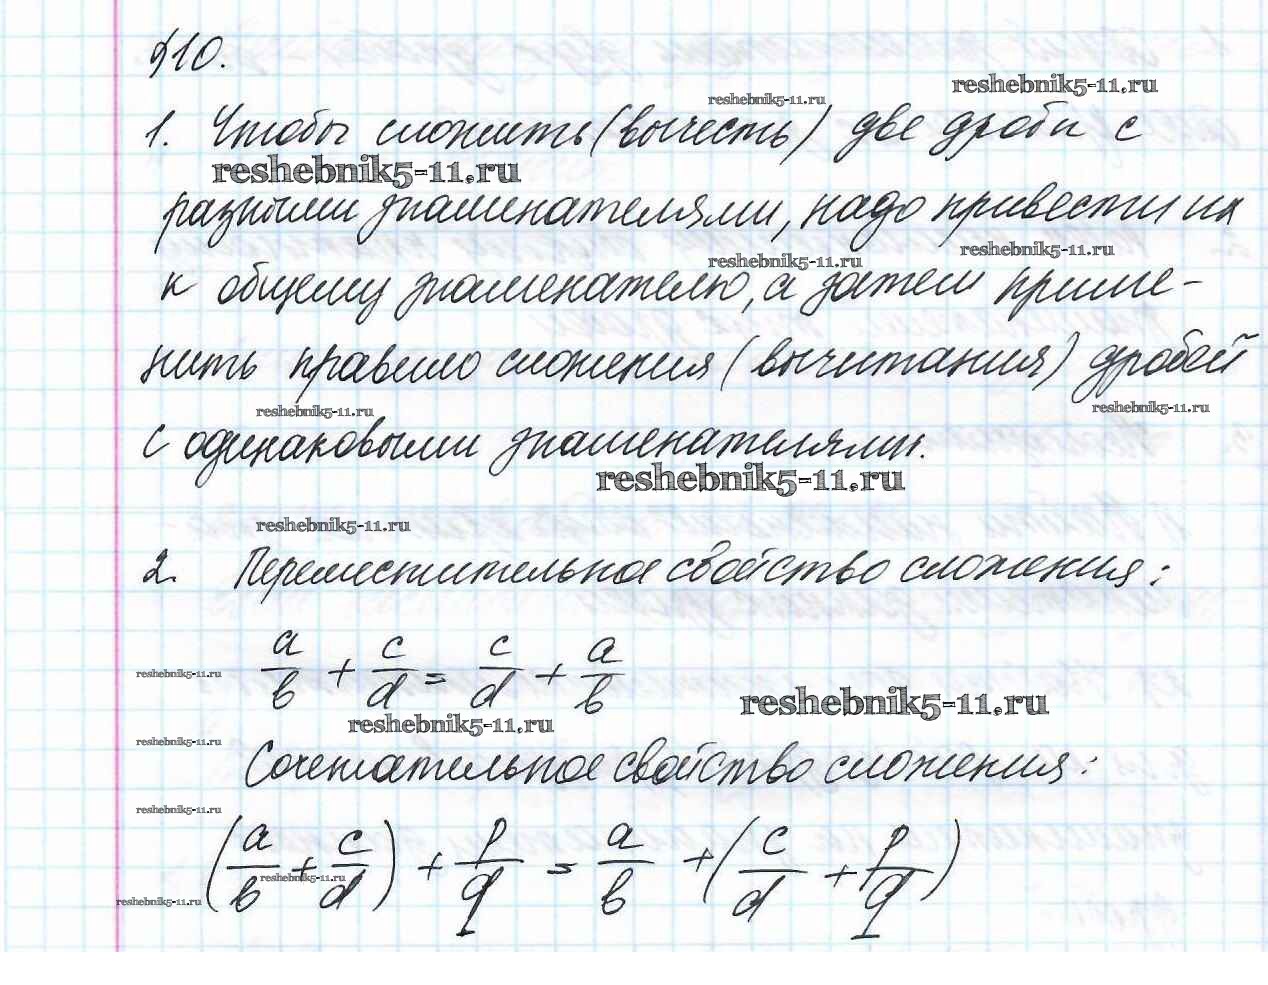 §10.
reshebnik5-11.ru
reshebnik5-11.ru
1. Чтобы сложить (вычесть) две дроби с
reshebnik5-11.ru
разными знаменателями, надо привести их
reshebnik5-11.ru
reshebnik5-11.ru
к общему знаменателю, а затем приме-
нить правило сложения (вычитания) дробей
reshebnik5-11.ru
reshebnik5-11.ru
с одинаковыми знаменателями.
reshebnik5-11.ru
reshebnik5-11.ru
2. Переместительное свойство сложения:
a/b + c/d = c/d + a/b
reshebnik5-11.ru
reshebnik5-11.ru
reshebnik5-11.ru
reshebnik5-11.ru
Сочетательное свойство сложения:
reshebnik5-11.ru
(a/b + c/d) + p/q = a/b + (c/d + p/q)
reshebnik5-11.ru
reshebnik5-11.ru